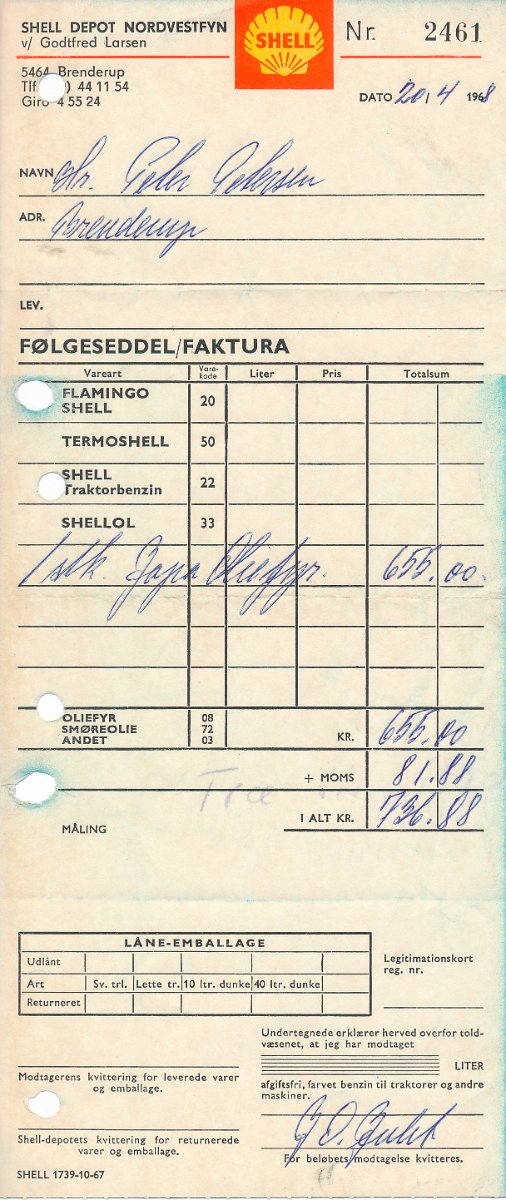 SHELL DEPOT NORDVESTFYN
v/ Godtfred Larsen
SHELL
Nr. 2461
5464 Brenderup
Tlf ) 44 11 54
Giro 4 55 24
DATO 20/4 1968
NAVN Hr. Peter Petersen
ADR. Brenderup
LEV.
FØLGESEDDEL/FAKTURA
Vareart Vare-kode Liter Pris Totalsum
FLAMINGO
SHELL 20
TERMOSHELL 50
SHELL
Traktorbenzin 22
SHELLOL 33
1 stk. Oliefyr. 655.00.
OLIEFYR 08
SMØREOLIE 72
ANDET 03
KR. 655.00
+ MOMS 81.88
I ALT KR. 736.88
MÅLING
LÅNE-EMBALLAGE
Udlånt
Art Sv. trl. Lette tr. 10 ltr. dunke 40 ltr. dunke
Returneret
Legitimationskort
reg. nr.
Modtagerens kvittering for leverede varer
og emballage.
Shell-depotets kvittering for returnerede
varer og emballage.
SHELL 1739-10-67
Undertegnede erklærer herved overfor told-
væsenet, at jeg har modtaget
LITER
afgiftsfri, farvet benzin til traktorer og andre
maskiner.
For beløbets modtagelse kvitteres.